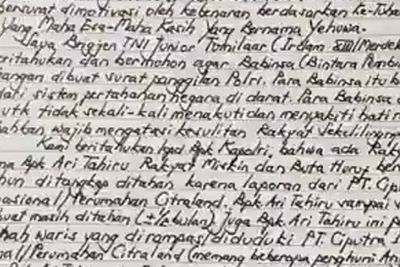 bersurat dimotivasi oleh kebenaran berdasarkan Ke-Tuha
Yang Maha Esa-Maha Kasih Yang Bernama Yehuwa.
Saya Brigjen TNI Junior Tumilaar (Irdam XIII/Merdek
beritahukan dan bermohon agar Babinsa (Bintara Pembi
angan dibuat surat panggilan Polri. Para Babinsa itu b
dati sistem pertahanan negara di darat. Para Babinsa
utk tidak sekali-kali menakuti dan menyakiti hati r
ahkan wajib mengatasi kesulitan Rakyat Sekelilingny
Kami beritahukan kpd Bpk Kapolri, bahwa ada Rak
na Bpk Ari Tahiru Rakyat Miskin dan Buta Huruf ber
hun ditangkap ditahan karena laporan dari PT. Cip
asional/Perumahan Citraland. Bpk Ari Tahiru sampai
buat masih ditahan (±½ bulan) Juga Bpk. Ari Tahiru ini p
nah waris yang dirampas/diduduki PT. Ciputra I
nal/Perumahan Citraland (memang beberapa penghuni An